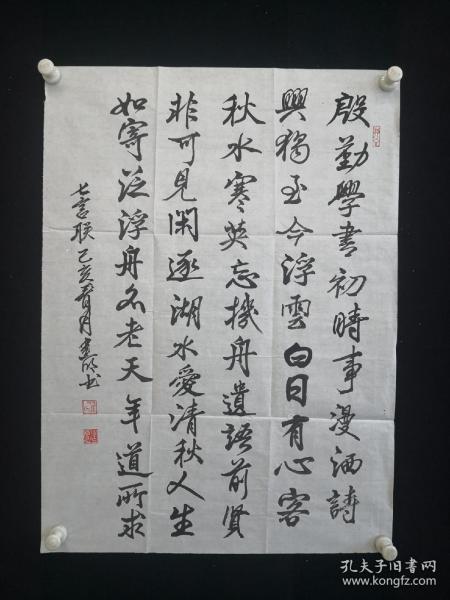 殷勤學書初時事漫洒詩
興獨至今浮雲白日有心客
秋水寒英忘機舟遺語前賢
非可見閑逐湖水愛清秋人生
如寄泛浮舟不老天年道所求
七言联己亥首月建成书
孔夫子旧书网
www.kongfz.com